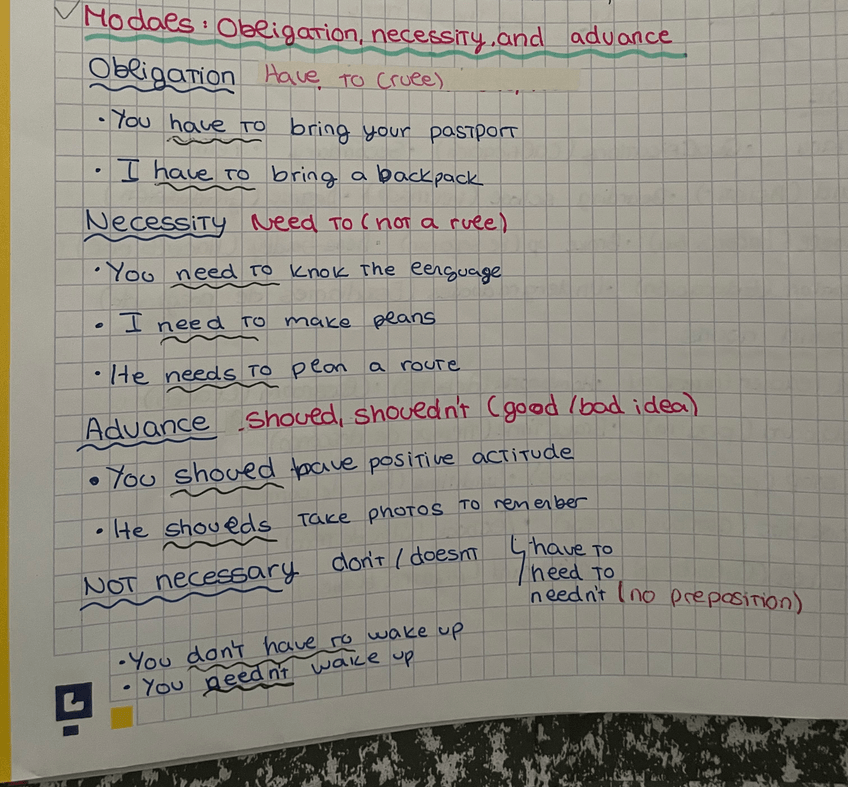 Modals: Obligation, necessity, and advance
Obligation Have to (rule)
• You have to bring your pastport
• I have to bring a backpack
Necessity Need to (not a rule)
• You need to knok the lenguage
• I need to make plans
• He needs to plan a route
Advance . should, shouldn't (good / bad idea)
• You should have positive actitude
• He shoulds take photos to remember
Not necessary don't / doesnt have to
need to
needn't (no preposition)
• You don't have to wake up
• You needn't wake up